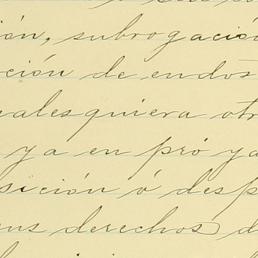 ión, subrogación
ción de endos
ualesquiera otr
ya en pró ya
sición ó desp
ens derechos d